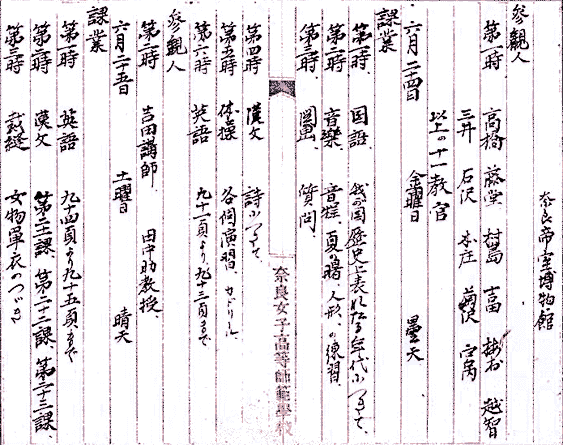 奈良帝室博物館
参観人
第一時 高橋 藤堂 村島 冨 越智
三井 石沢 本庄 菊沢
以上の十一教官
六月二十四日 金曜日 曇天
課業
第一時、国語 我が国歴史上表れたる年代につきて、
第二時、音楽、音程、夏の曙、人形、の練習、
第三時、図画、質問、
奈良女子高等師範學校
第四時 漢文 詩につきて、
第五時 体操 各個演習、
第六時 英語 九十一頁より九十三頁まで
参観人
第二時 吉田講師 田中助教授
六月二十五日 土曜日 晴天
課業
第一時 英語 九十四頁より九十五頁まで
第二時 漢文 第二十一課、第二十二課、第二十三課、
第三時 裁縫 女物單衣のつづき